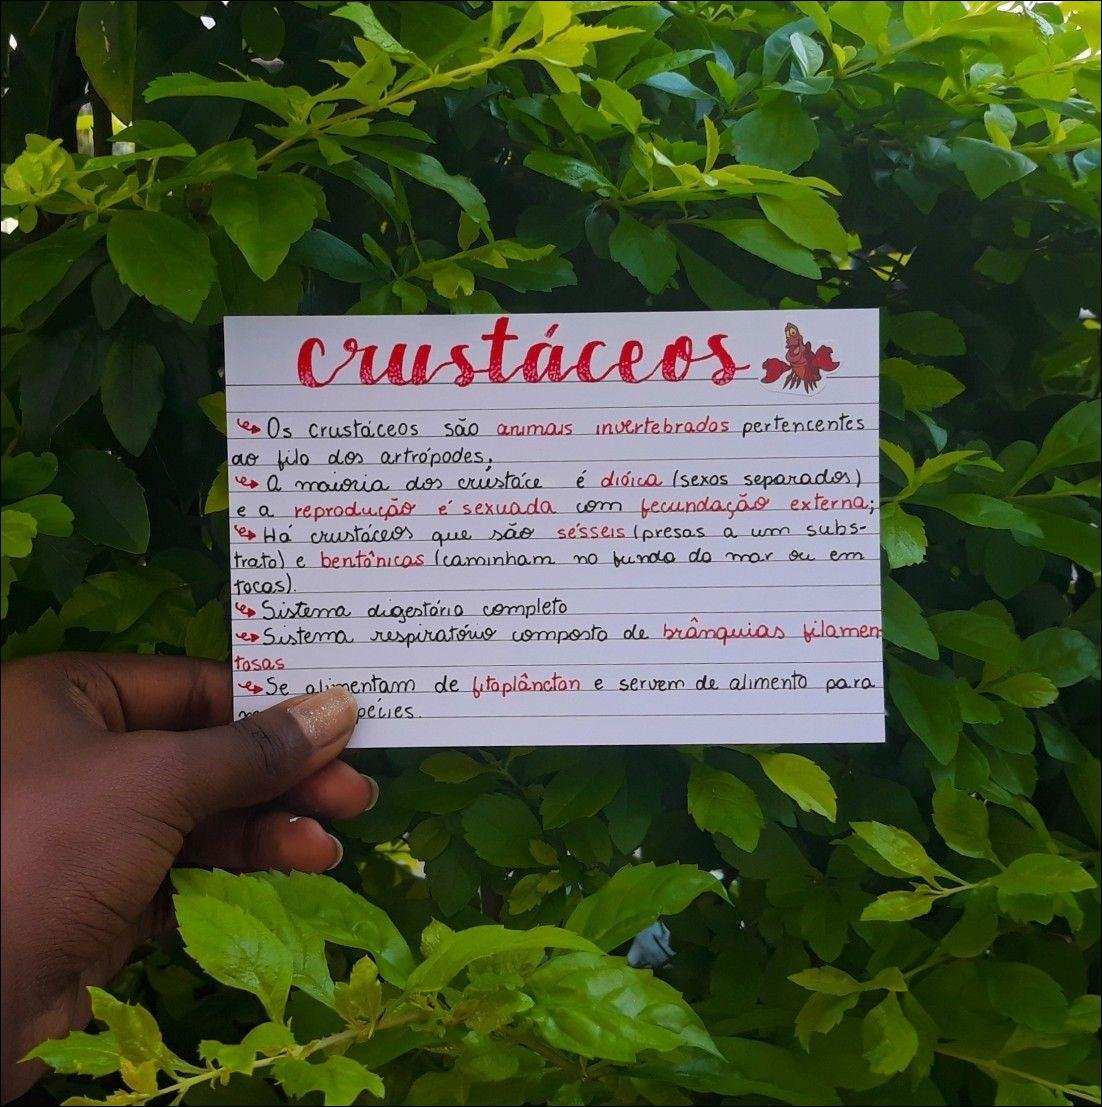 crustáceos
Os crustáceos são animais invertebrados pertencentes
ao filo dos artrópodes;
A maioria dos crustáce é dióica (sexos separados)
e a reprodução é sexuada com fecundação externa;
Há crustáceos que são sésseis (presas a um subs-
trato) e bentônicas (caminham no fundo do mar ou em
tocas).
Sistema digestório completo
Sistema respiratório composto de brânquias filamen-
tosas
Se alimentam de fitoplâncton e servem de alimento para
pécies.